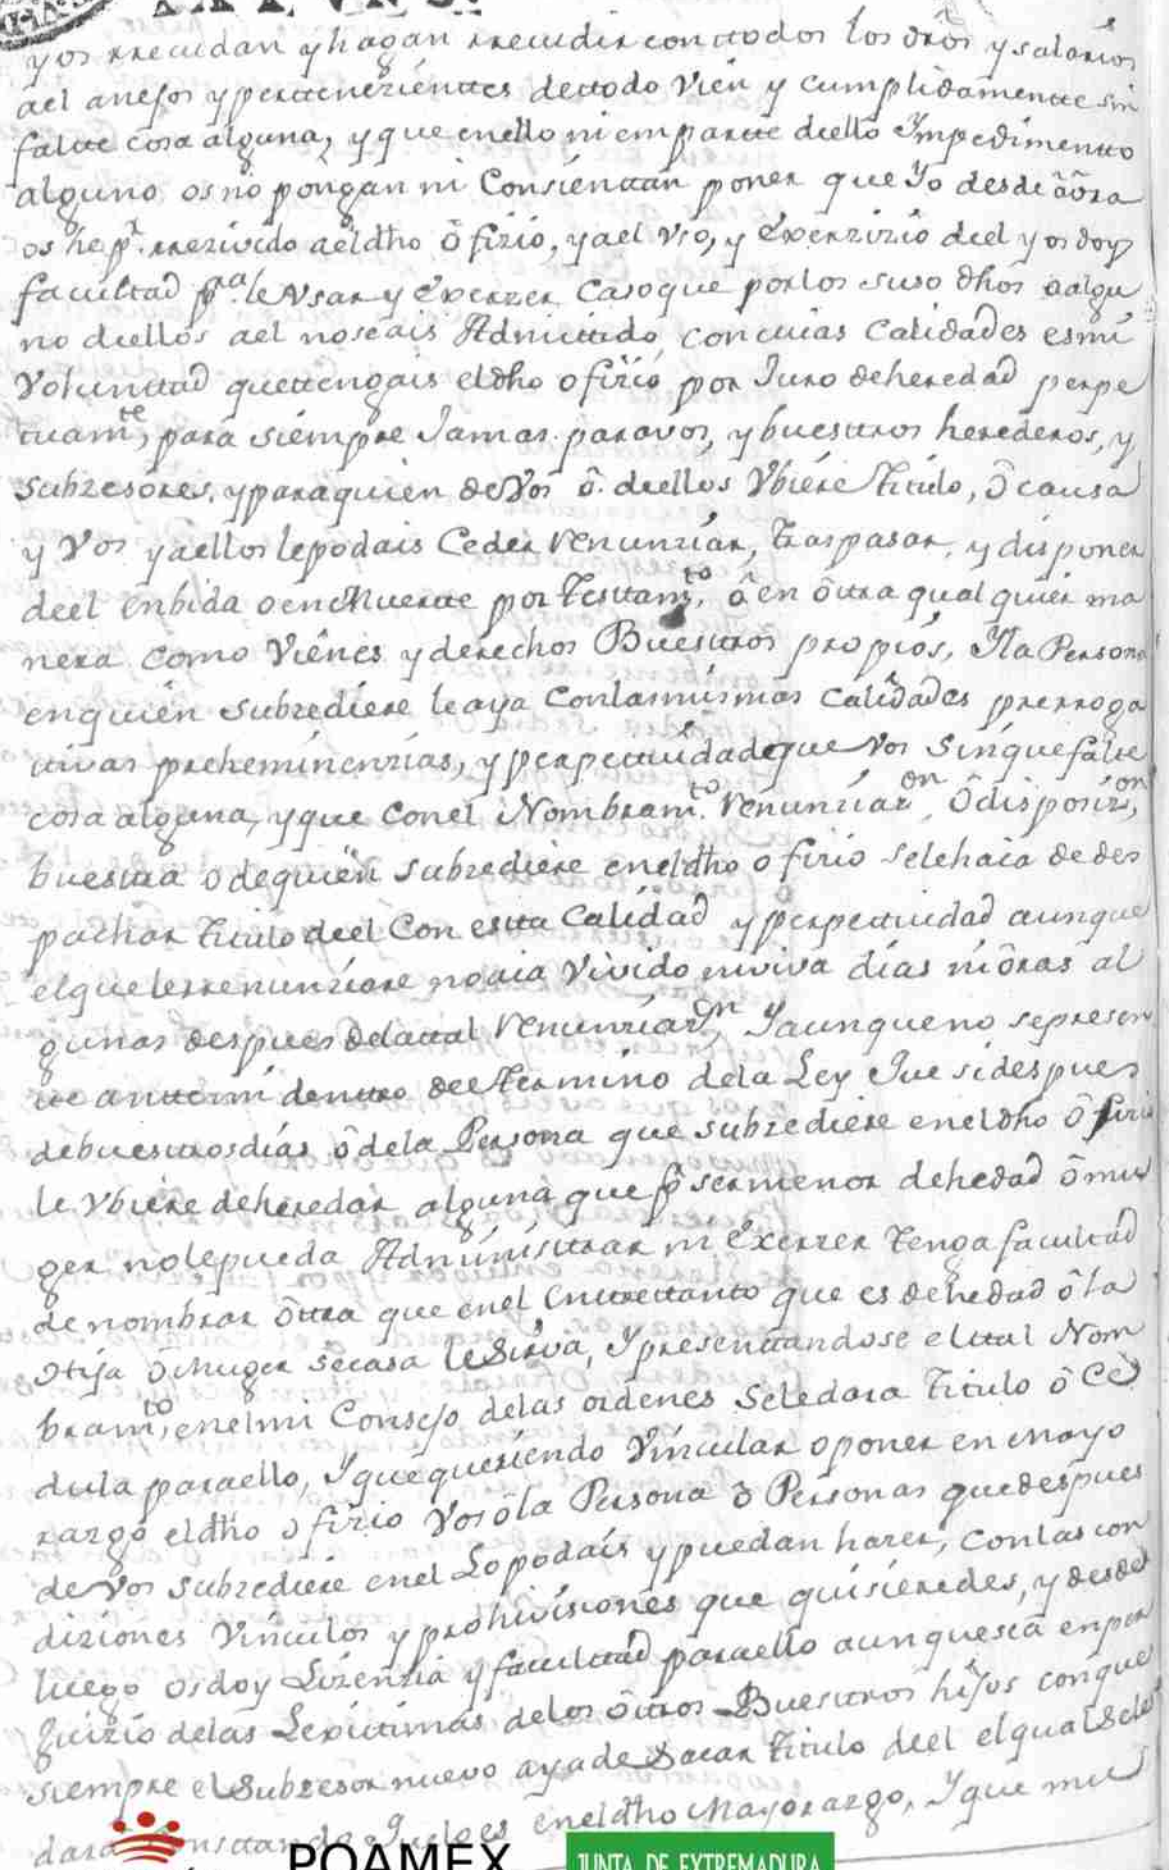 y os rrecudan y hagan rrecudir con ttodos los dros y salarios
ael anejos y perttenezienttes de ttodo Vien y Cumplidamentte sin
faltte cosa alguna, y que en ello ni em partte de ello Ympedimentto
alguno os no pongan ni Consienttan poner que Yo desde aora
os he pr. rrezivido ael dho ofizio, y ael Vso, y Exerzizio de el y os doy
facultad pa. le Vsar y Exerzer Caso que por los suso dhos o algu
no de ellos ael no seais Admittido con cuias Calidades es mi
Volunttad que ttengais el dho ofizio por Juro de heredad perpe
tuamte, para siempre Jamas para vos, y buesttros herederos, y
Subzesores, y para quien de Vos o de ellos Vbiere titulo, o causa
y Vos y a ellos le podais Ceder Renunziar, traspasar, y disponer
de el en bida o en Muertte por testtamto, o en ottra qual quier ma
nera como Vienes y derechos Buesttros propios, Y la Persona
en quien subzediere le aya Con las mismas Calidades prerroga
tivas preheminenzias, y perpettuidad que Vos sin que faltte
cosa alguna, y que con el Nombramto. Renunziazon, o disposizon,
buesttra o de quien subzediere en el dho ofizio se le haia de des
pachar titulo de el Con estta Calidad y perpettuidad aunque
el que le rrenunziare no aia Vivido ni viva dias ni oras al
gunas despues de la ttal Renunziazon, Y aunque no se presen
te antte mi denttro de el termino de la Ley Que si despues
de buesttros dias o de la Persona que subzediere en el dho ofizio
le Vbiere de heredar alguna que pr ser menor de hedad o mu
ger no le pueda Administtrar ni Exerzer tenga facultad
de nombrar ottra que en el Entrettanto que es de hedad o la
Hija o Muger se casa le Sirva, Y presenttandose el ttal Nom
bramto, en el mi Consejo de las ordenes Se le dara titulo o Ce
dula para ello, Y que queriendo Vincular o poner en Mayo
razgo el dho ofizio Vos o la Persona o Personas que despues
de Vos subzediere en el Lo podais y puedan hazer, con las con
diziones Vinculos y prohivisiones que quisieredes, y desde
luego os doy Lizenzia y facultad para ello aunque sea en per
Juizio de las Lexittimas de los ottros Buesttros hijos con que
siempre el Subzesor nuevo aya de Sacar titulo de el el qual se le
dara en el dho Mayorazgo, Y que mu
POAMEX
JUNTA DE EXTREMADURA